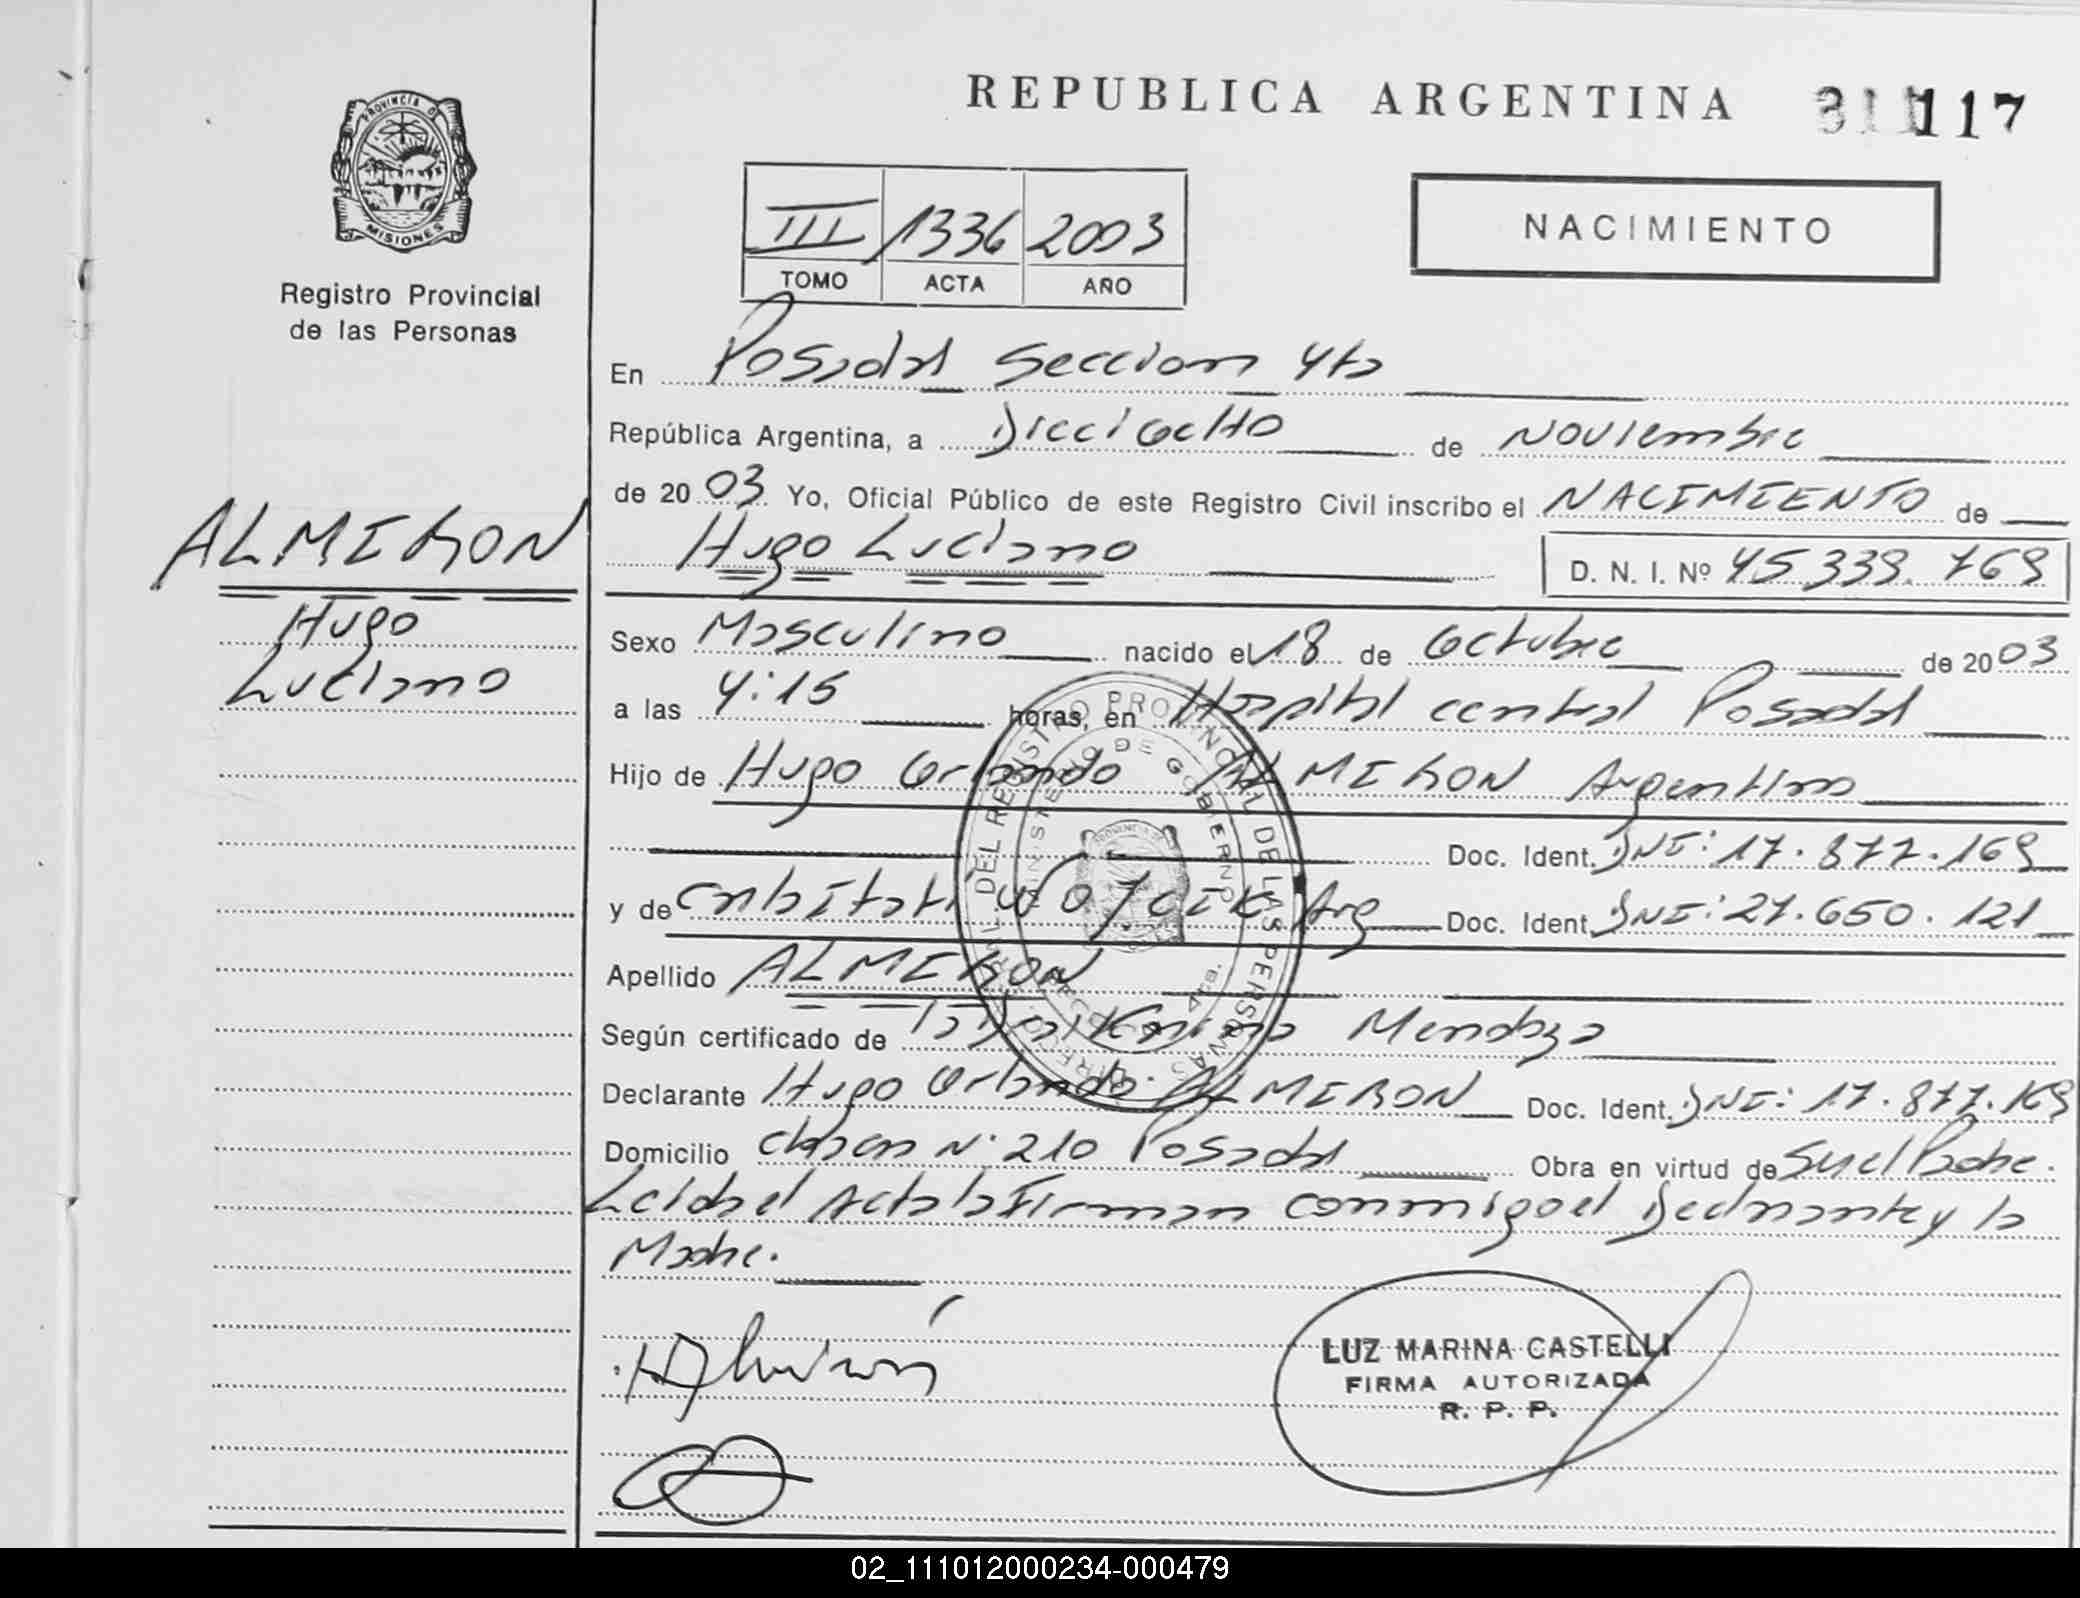 REPUBLICA ARGENTINA
117
PROVINCIA DE MISIONES
Registro Provincial
de las Personas
NACIMIENTO
III 1336 2003
TOMO ACTA AÑO
En Posadas Seccion 4ta
República Argentina, a Dieciocho de Noviembre
de 2003 Yo, Oficial Público de este Registro Civil inscribo el NACIMIENTO de
ALMIRON
Hugo Luciano D. N. I. Nº 45.339.769
Hugo
Luciano
Sexo Masculino nacido el 18 de Octubre de 2003
a las 4:15 horas, en Hospital central Posadas
Hijo de Hugo Orlando ALMIRON Argentino
Doc. Ident. DNI: 17.877.169
y de Arg Doc. Ident. DNI: 27.650.121
Apellido ALMIRON
Según certificado de Mendoza
Declarante Hugo Orlando ALMIRON Doc. Ident. DNI: 17.877.169
Domicilio N° 210 Posadas Obra en virtud de Ser el Padre.
Leida el Acta la Firman conmigo el Declarante y la
Madre.
DIRECC. GRAL. DEL REGISTRO PROVINCIAL DE LAS PERSONAS
MINISTERIO DE GOBIERNO
4ta.
LUZ MARINA CASTELLI
FIRMA AUTORIZADA
R. P. P.
02_111012000234-000479